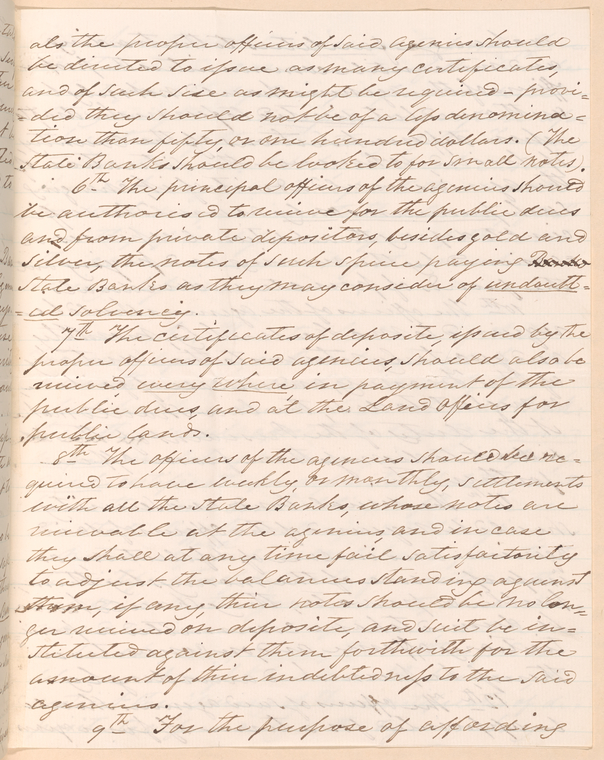 als the proper officers of said agencies should
be directed to issue as many certificates,
and of such size as might be required - provi=
=ded they should not be of a less denomina=
=tion than fifty, or one hundred dollars. (The
State Banks should be looked to for small notes).
6th The principal officers of the agencies should
be authorised to receive for the public dues
and from private depositors, besides gold and
silver, the notes of such specie paying
State Banks as they may consider of undoubt=
=ed solvency.
7th The certificates of deposite, issued by the
proper officers of said agencies, should also be
received every where in payment of the
public dues, and at the Land Offices for
public lands.
8th The officers of the agencies should be re=
quired to have weekly, or monthly, settlements
with all the State Banks, whose notes are
receivable at the agencies, and in case
they shall at any time fail satisfactorily
to adjust the balances standing against
them, if any, their notes should be no lon=
ger received on deposite, and suit be in=
stituted against them forthwith for the
amount of their indebtedness to the said
agencies.
9th For the purpose of affording